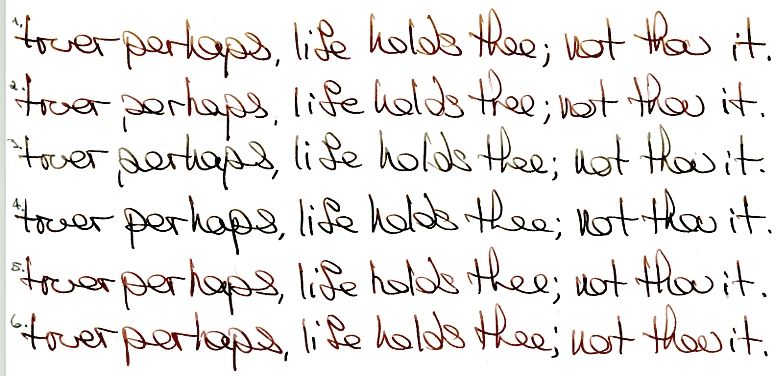 1. tower perhaps, life holds thee; not thou it.
2. tower perhaps, life holds thee; not thou it.
3. tower perhaps, life holds thee; not thou it.
4. tower perhaps, life holds thee; not thou it.
5. tower perhaps, life holds thee; not thou it.
6. tower perhaps, life holds thee; not thou it.